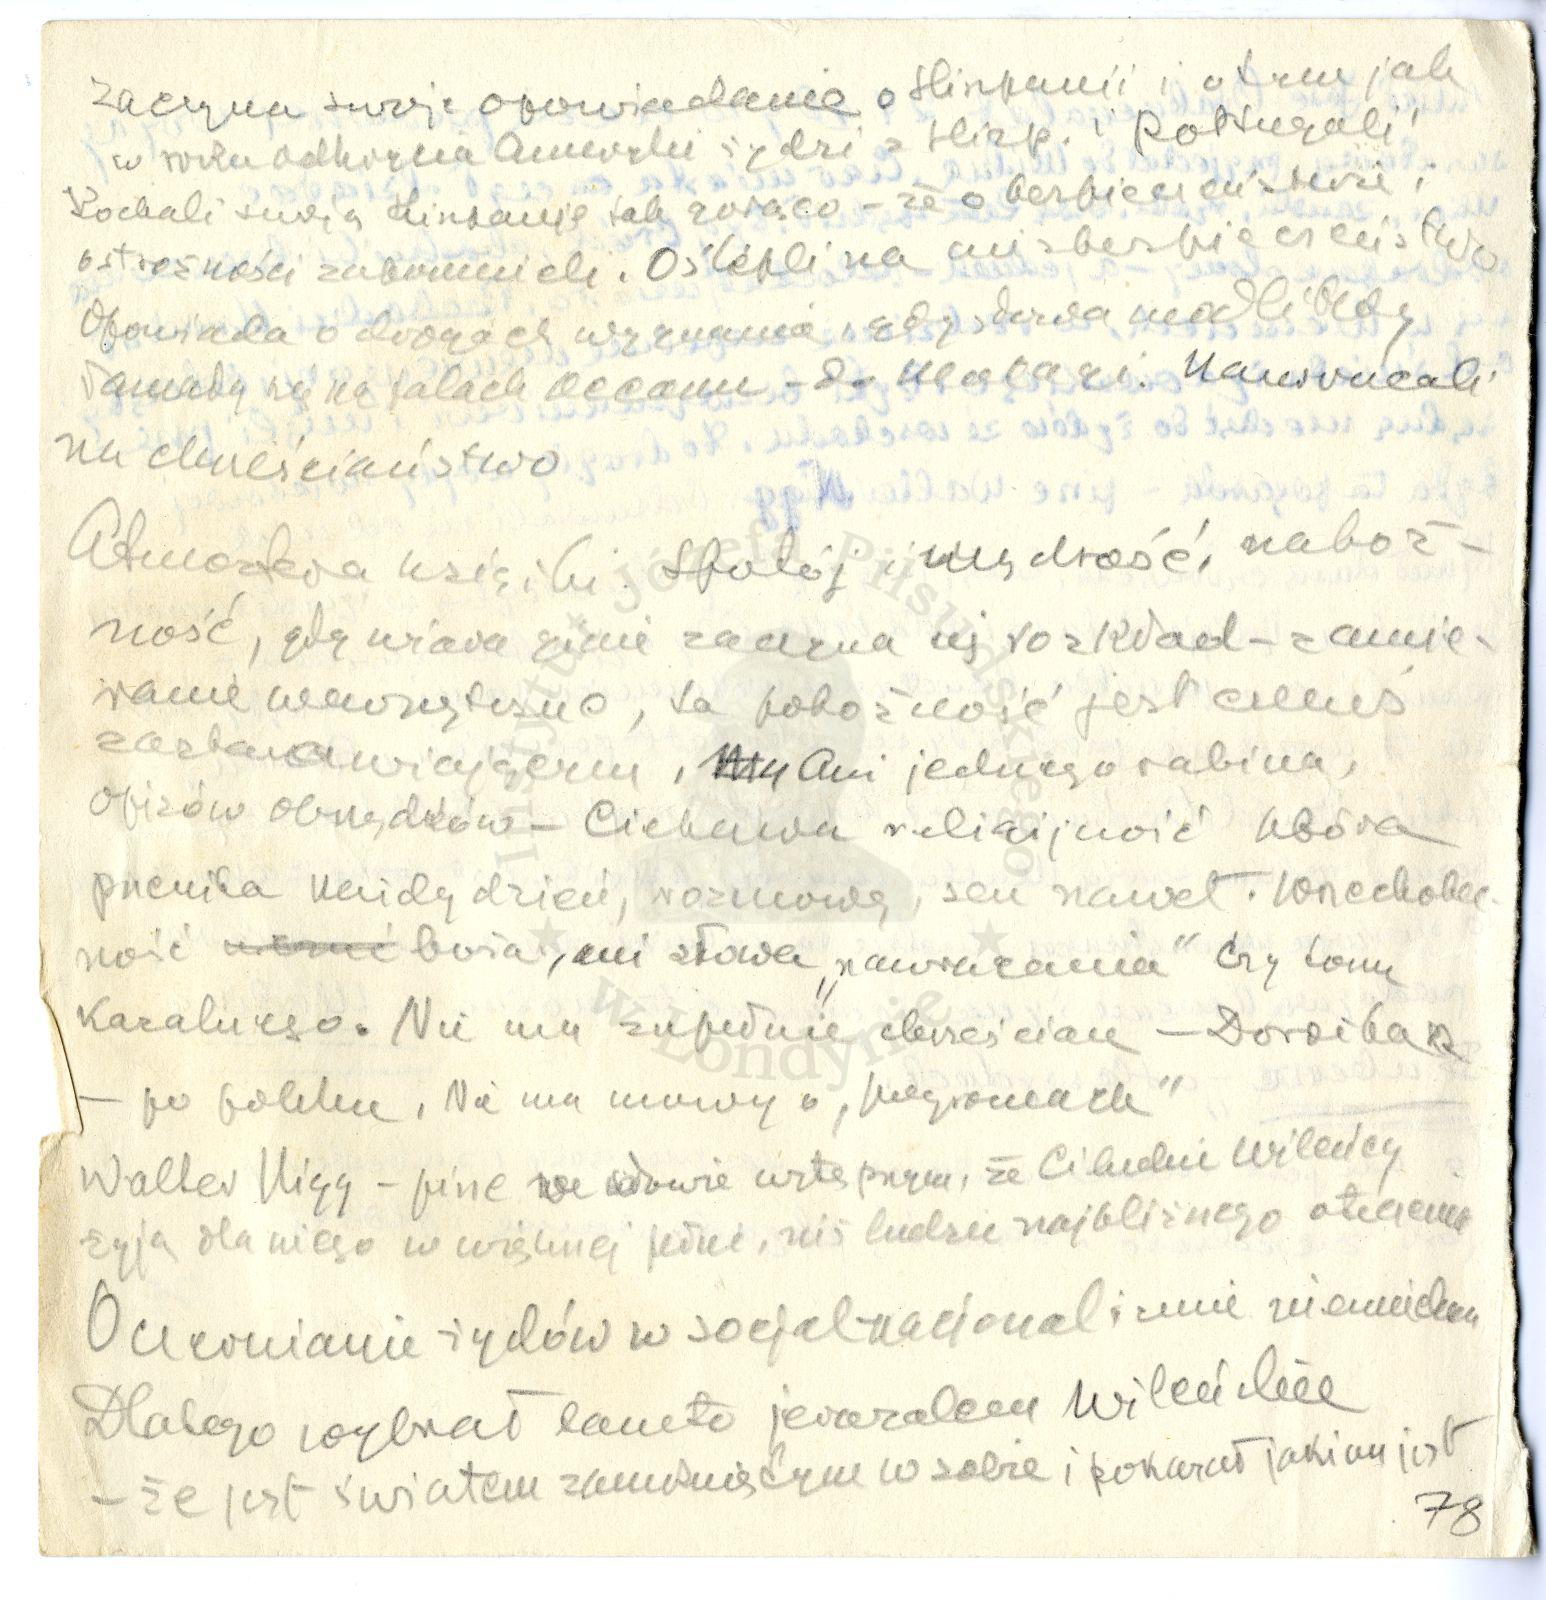 zaczyna swoje opowiadanie o Hiszpanii i o tem jak
w roku odkrycia Ameryki żydzi z Hiszp. i Portugalii
Kochali swoją Hiszpanię tak gorąco – że o bezpieczeństwie i
ostrożności zapomnieli. Oślepli na niebezpieczeństwo
Opowiada o drogach wygnania, gdy słowa modlitwy
łamały się na falach oceanu – do . Nawracali
na chrześciaństwo
Atmosfera książki. Spokój i mądrość, naboż-
ność, gdy wiara ginie zaczyna się rozkład – zamie-
ranie wewnętrzne, ta pobożność jest czemś
zastanawiającem, Ani jednego rabina,
Opisów obrzędów – Ciekawa religijność która
przenika każdy dzień, rozmowę, sen nawet. Wszechobec-
ność boża, ani słowa „nawracania" czy tonu
karalnego. Nie ma zupełnie chrześcian – Dorożkarz
– po polsku, Nie ma mowy o „pogromach"
Walter Nigg – pisze we słowie wstępnym, że Ci ludzie Wileńscy
żyją dla niego w większej pełni, niż ludzie najbliższego otoczenia
Oczernianie żydów w socjal-nacjonaliźmie niemieckim
Dlatego wybrał tamto jerozalem Wileńskie
– że jest światem zamkniętym w sobie i pokazał jakim jest
78
Instytut Józefa Piłsudskiego
w Londynie